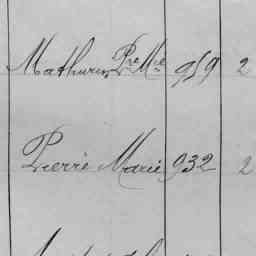 Mathurin Pre Mie 959 2
Pierre Marie 932 2